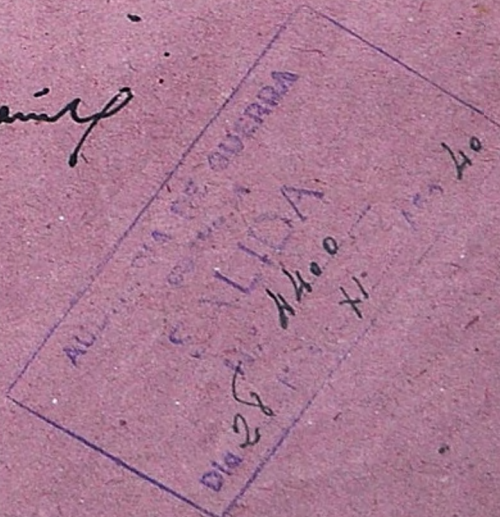 AUDITORIA DE GUERRA
SALIDA
Nº 4400
Dia 28 XI Año 40